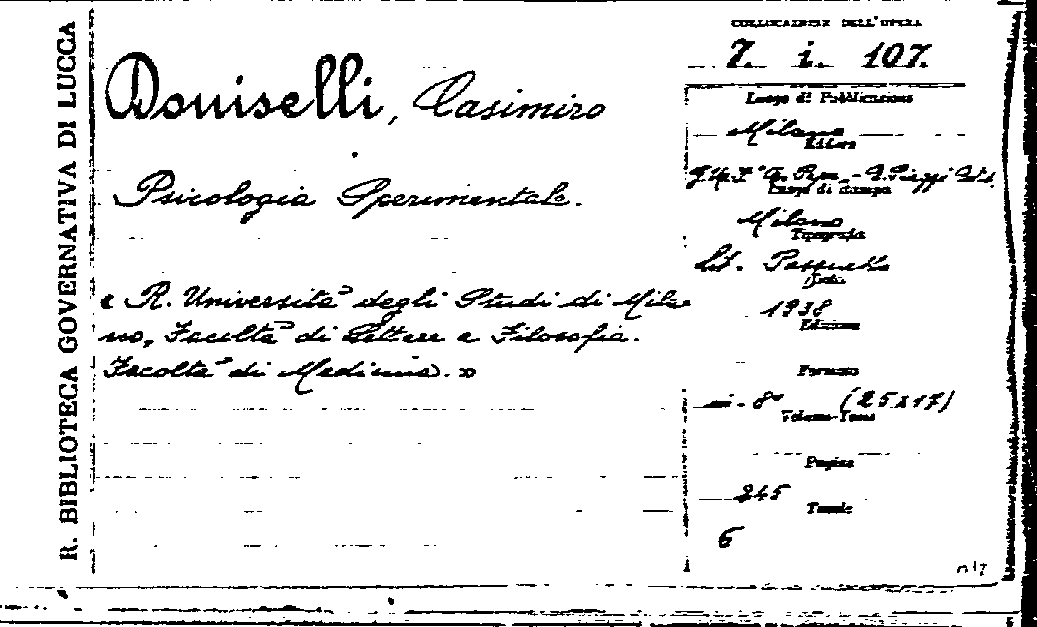 R. BIBLIOTECA GOVERNATIVA DI LUCCA
Doniselli, Casimiro
Psicologia Sperimentale.
« R. Università degli Studi di Mila
no, Facoltà di Lettere e Filosofia.
Facoltà di Medicina. »
COLLOCAZIONE DELL'OPERA
7. i. 107.
Luogo di Pubblicazione
Milano
Editore
Luogo di stampa
Milano
Tipografia
Lit.
1938
Edizione
Formato
in-8° (25x17)
Volume-Tomo
Pagine
245
Tavole
6